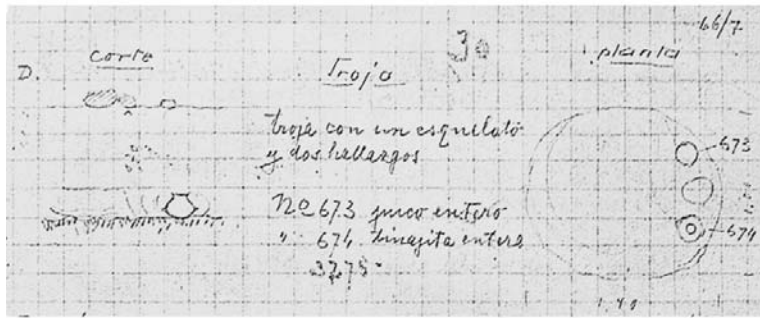 66/7
30
D.
corte
Troja
planta
troja con un esqueleto
y dos hallazgos
No 673 puco entero
" 674 tinajita entera
3275
673
674